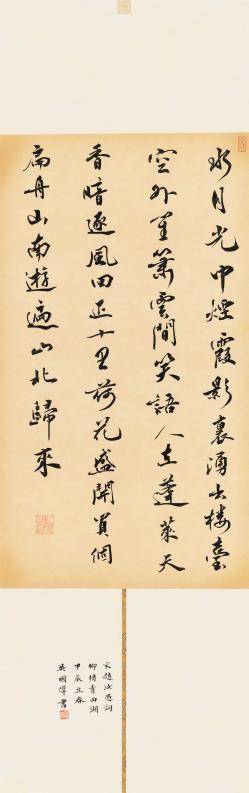 水月光中煙霞影裏湧出楼臺
空外笙簫雲間笑語人在蓬萊天
香暗逐風回正十里荷花盛開買個
扁舟山南遊遍山北歸來
宋趙汝愚詞
柳梢青西湖
甲辰立春
吳國偉書